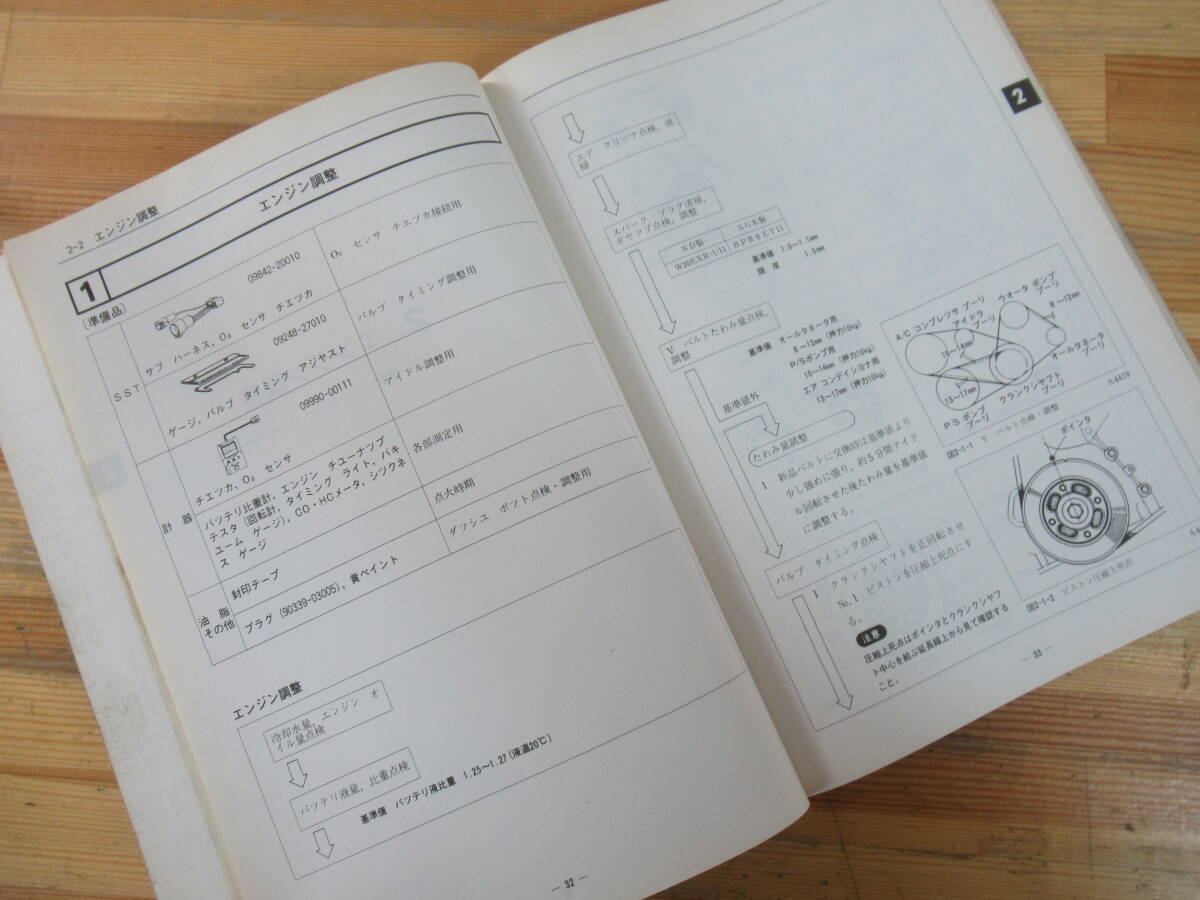 2-2 エンジン調整
1
エンジン調整
〔準備品〕
SST
09842-20010
サブ ハーネス, O₂ センサ チエツカ
O₂ センサ チエツカ接続用
09248-27010
ゲージ, バルブ タイミング アジヤスト
バルブ タイミング調整用
09990-00111
チエツカ, O₂ センサ
アイドル調整用
計器
バッテリ比重計, エンジン チユーナツプ
テスタ (回転計, タイミング ライト, バキ
ユーム ゲージ), CO・HCメータ, シツクネ
ス ゲージ
各部測定用
油脂
その他
封印テープ
点火時期
プラグ (90339-03005), 黄ペイント
ダツシユ ポツト点検・調整用
エンジン調整
冷却水量, エンジン オ
イル量点検
バツテリ液量, 比重点検
基準値 バツテリ液比重 1.25〜1.27 (液温20℃)
― 32 ―
2
エア クリーナ点検, 清
掃
スパーク プラグ清掃,
ギヤツプ点検, 調整
ND製 NGK製
W20EXR-U11 BPR6EY11
基準値 1.0〜1.1mm
限度 1.3mm
V ベルトたわみ量点検,
調整
基準値 オールタネータ用
8〜12mm (押力10kg)
P/Sポンプ用
10〜14mm (押力10kg)
エア コンデイシヨナ用
13〜17mm (押力10kg)
基準値外
たわみ量調整
1 新品ベルトに交換時は基準値より
少し強めに張り, 約5分間アイド
ル回転させた後たわみ量を基準値
に調整する。
バルブ タイミング点検
1 クランクシヤフトを正回転させ
No.1 ピストンを圧縮上死点にす
る。
注意
圧縮上死点はポインタとクランクシヤフ
ト中心を結ぶ延長線上から見て確認する
こと。
A/C コンプレツサ プーリ
アイドラ
プーリ
ウオータ ポンプ
プーリ
8〜12mm
10〜14mm
オールタネータ
プーリ
13〜17mm
クランクシヤフト
プーリ
P/S ポンプ
プーリ
A4419
図2-1-1 V ベルト点検・調整
ポインタ
図2-1-2 ピストン圧縮上死点
― 33 ―